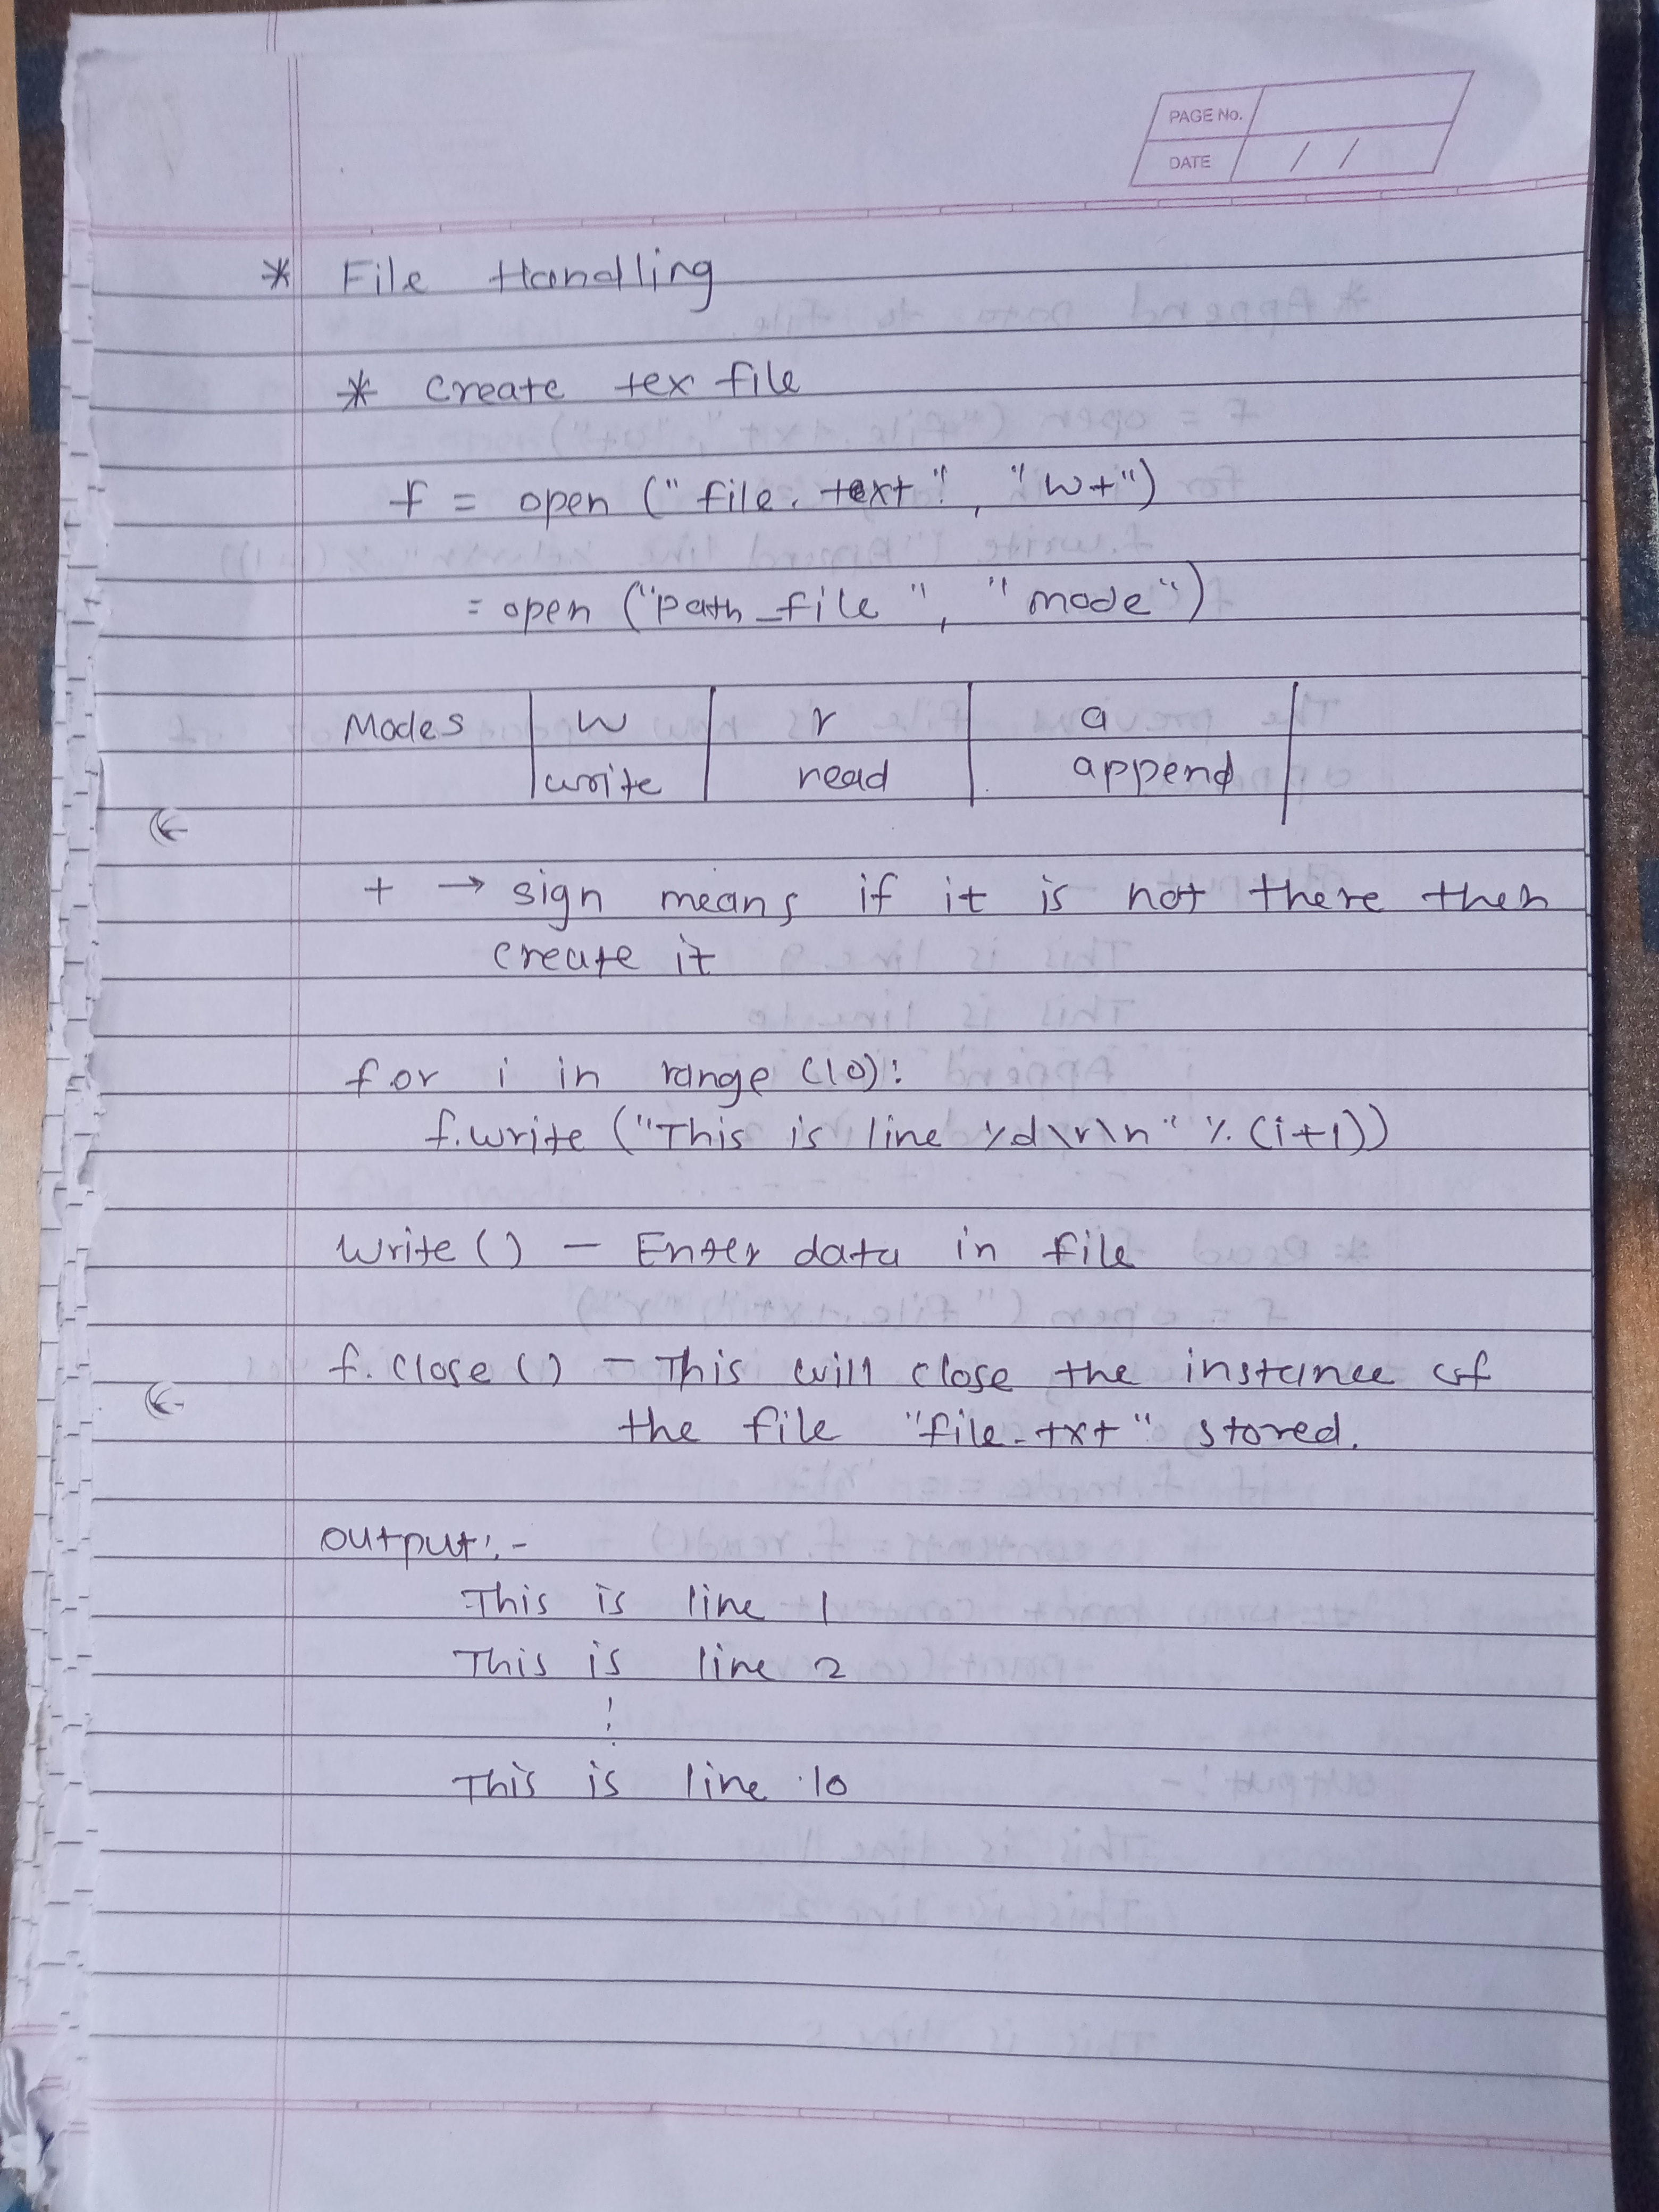 PAGE No.
DATE / /
* File Handling
* Create tex file
f = open ("file.text", "w+")
= open ("path_file", "mode")
Modes | w | r | a |
| write | read | append |
+ → sign means if it is not there then
create it
for i in range (10):
f.write ("This is line %d\r\n" % (i+1))
write () – Enter data in file
f. close () – This will close the instance of
the file "file.txt" stored.
output:-
This is line 1
This is line 2
⋮
This is line 10